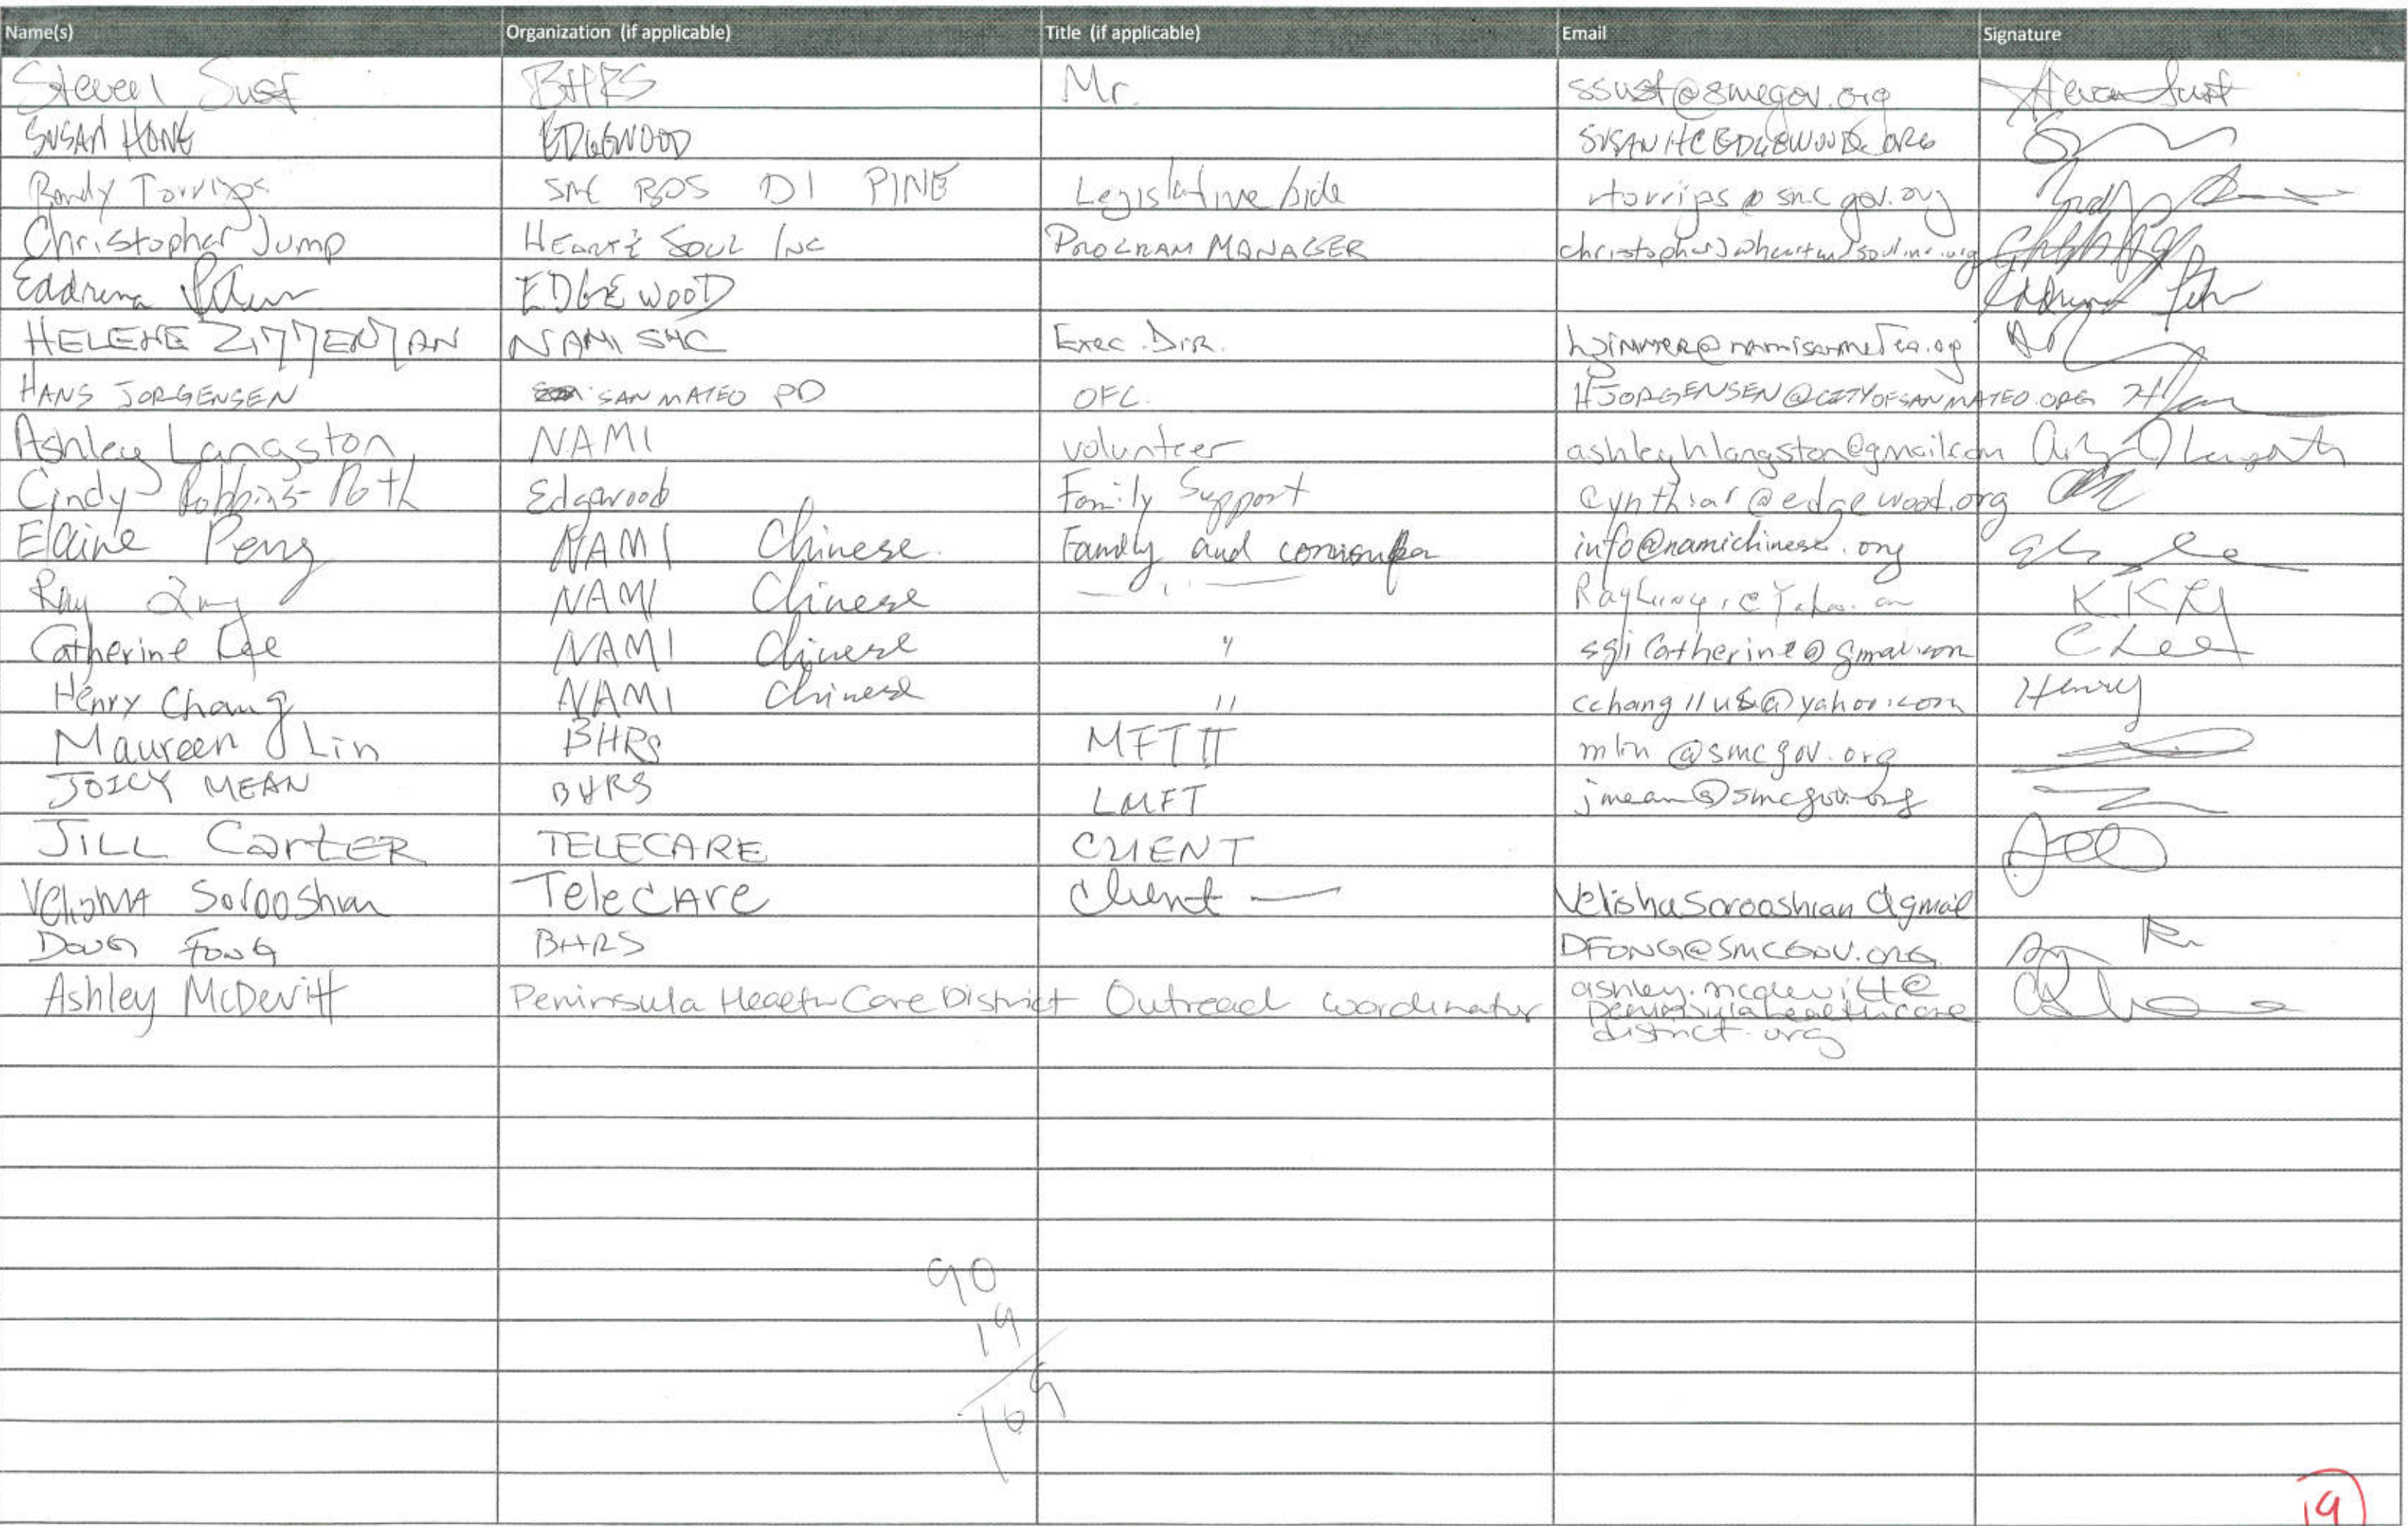 Name(s) Organization (if applicable) Title (if applicable) Email Signature
Steven Sust BHRS Mr. ssust@smcgov.org Steven Sust
SUSAN HONG EDGEWOOD SUSANH@EDGEWOOD.ORG
Randy Torrijos SMC BOS D1 PINE Legislative Aide rtorrijos@smcgov.org
Christopher Jump HEART & SOUL INC PROGRAM MANAGER christopherj@heartandsoulinc.org
Eddrena EDGEWOOD
HELENE ZIMMERMAN NAMI SMC Exec. Dir. hzimmer@namisanmateo.org
HANS JORGENSEN SAN MATEO PD OFC. HJORGENSEN@CITYOFSANMATEO.ORG
Ashley Langston NAMI volunteer ashleyhlangston@gmail.com
Cindy Robbins-Roth Edgewood Family Support cynthiar@edgewood.org
Elaine Peng NAMI Chinese Family and info@namichinese.org
Ray NAMI Chinese
Catherine Lee NAMI Chinese " sqlicatherine@gmail.com C Lee
Henry Chang NAMI Chinese " cchang11us@yahoo.com Henry
Maureen Lin BHRS MFT II mlin@smcgov.org
JOICY MEAN BHRS LMFT jmean@smcgov.org
JILL CartER TELECARE CLIENT
Velisha Sorooshian TeleCARe Client — VelishaSorooshian@gmail
DOUG FONG BHRS DFONG@SMCGOV.ORG
Ashley McDevitt Peninsula Health Care District Outreach Coordinator ashley.mcdevitt@
peninsulahealthcare
district.org
90
19
109
19